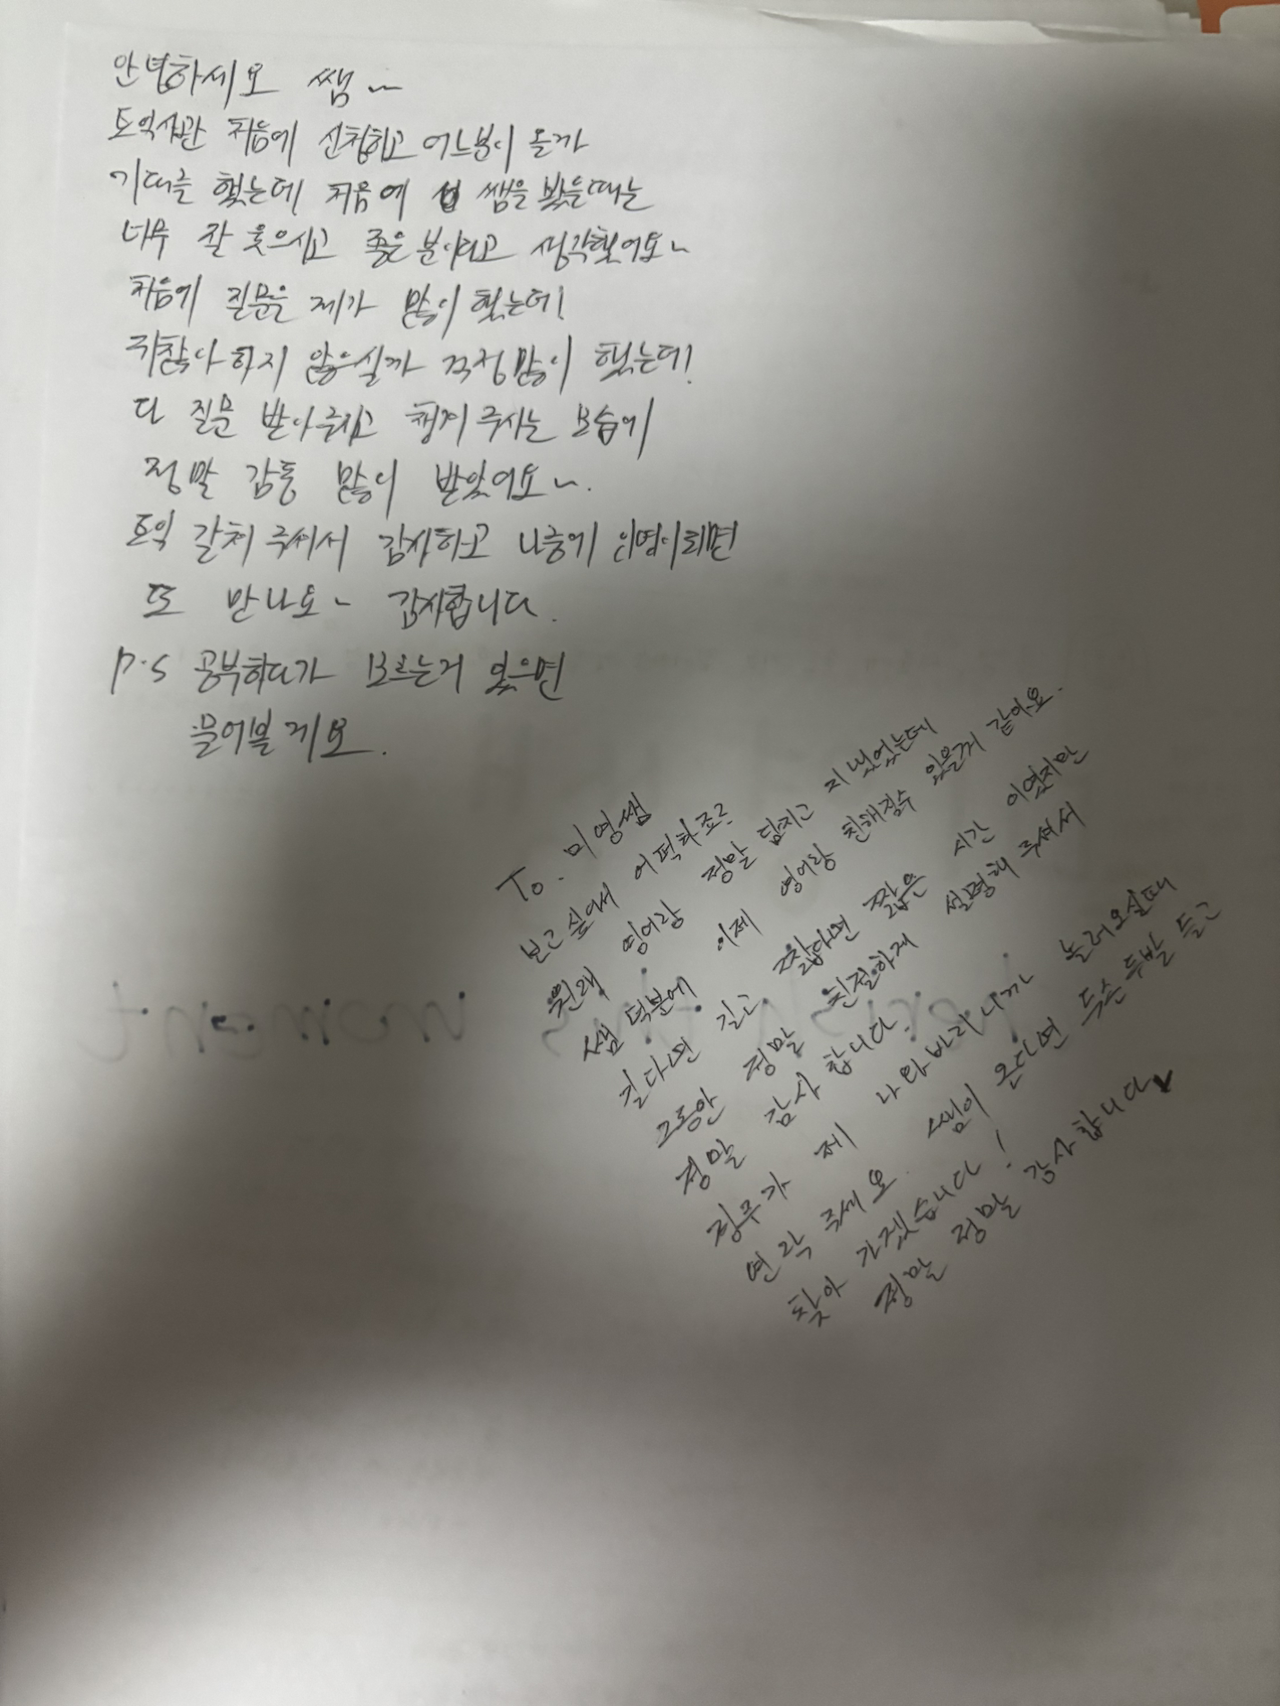 안녕하세요 쌤~
토익사관 처음에 신청하고 어느분이 올까
기대를 했는데 처음에 쌤을 봤을때는
너무 잘 웃으시고 좋은 분이라고 생각했어요~
처음에 질문을 제가 많이 했는데!
귀찮아 하지 않으실까 걱정많이 했는데!
다 질문 받아주시고 챙겨 주시는 모습에
정말 감동 많이 받았어요~.
토익 갈쳐 주셔서 감사하고 나중에 인연이되면
또 만나요~ 감사합니다.
P.S 공부하다가 모르는거 있으면
물어볼게요.
To. 미영쌤
보고싶어서 어떡하죠?
원래 영어랑 정말 담지고 지냈었는데
쌤 덕분에 이제 영어랑 친해질수 있을거 같아요.
길다면 길고 짧다면 짧은 시간 이였지만
그동안 정말 친절하게 설명해 주셔서
정말 감사 합니다.
징무가 제 나와바리니까 놀러오실때
연락 주세요. 쌤이 온다면 두손두발 들고
찾아 가겠습니다!
정말 정말 감사합니다♥
this moment